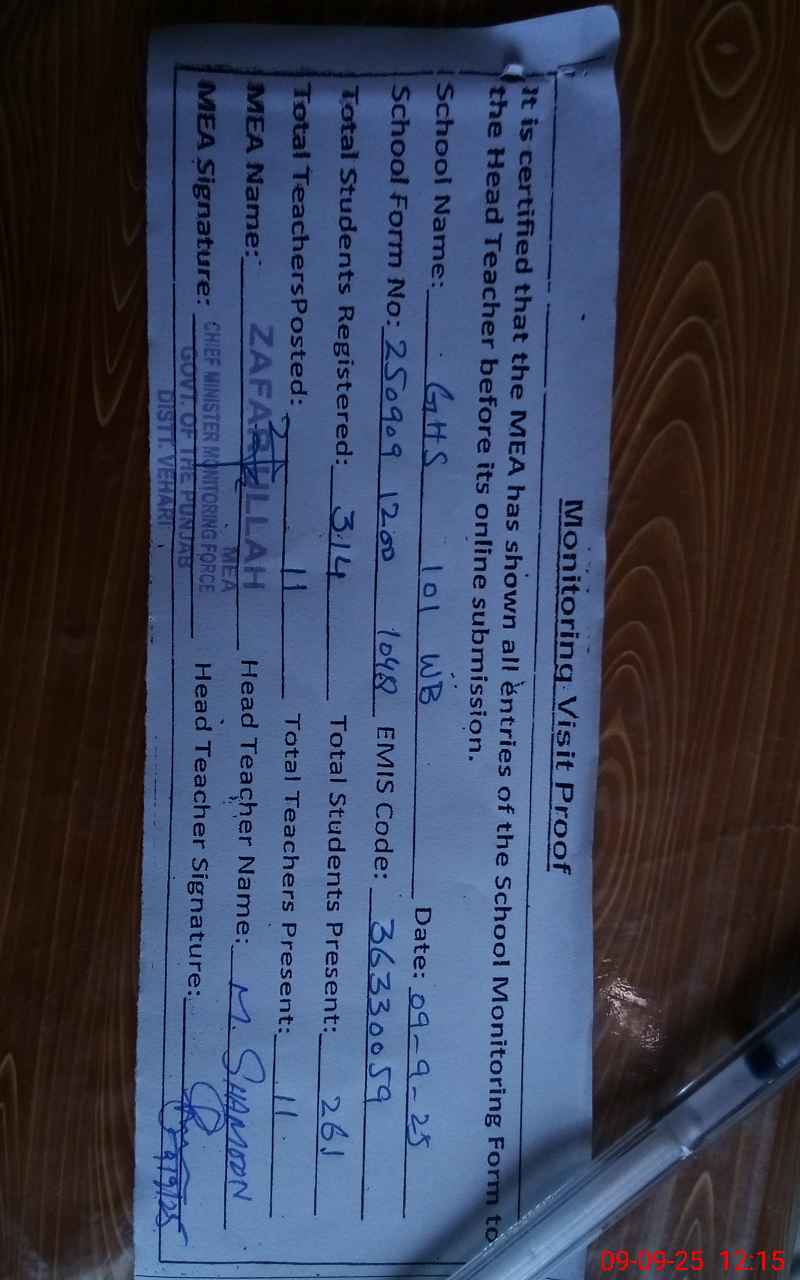 Monitoring Visit Proof
It is certified that the MEA has shown all entries of the School Monitoring Form to
the Head Teacher before its online submission.
School Name: GHS 101 WB Date: 09-9-25
School Form No: 250909 1200 1048 EMIS Code: 36330059
Total Students Registered: 314 Total Students Present: 261
Total TeachersPosted: 11 Total Teachers Present: 11
MEA Name: ZAFARULLAH Head Teacher Name: M. SHAMOON
MEA
MEA Signature: CHIEF MINISTER MONITORING FORCE Head Teacher Signature: 9/9/25
GOVT. OF THE PUNJAB
DISTT. VEHARI
09-09-25 12:15